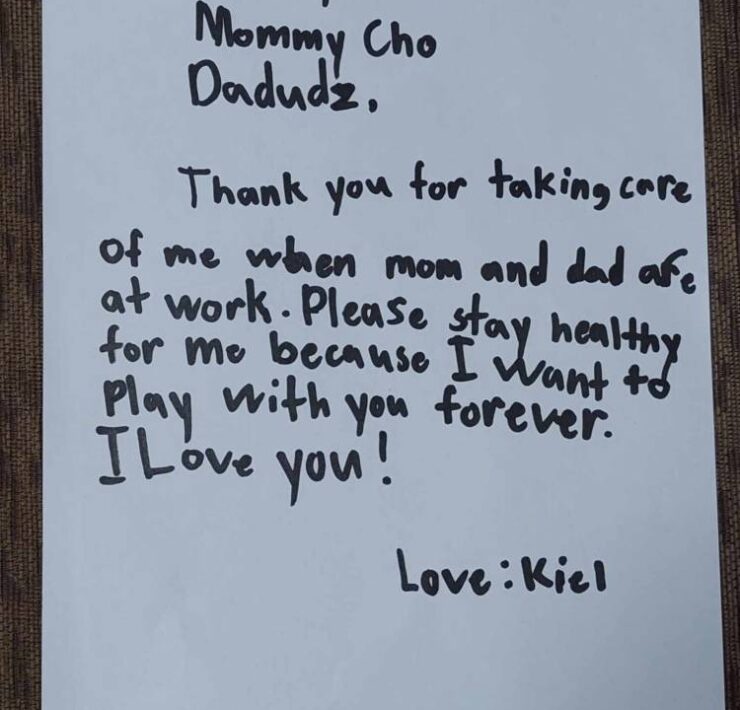 Mommy Cho
Dadudz,
Thank you for taking care
of me when mom and dad are
at work. Please stay healthy
for me because I want to
Play with you forever.
I Love you!
Love: Kiel